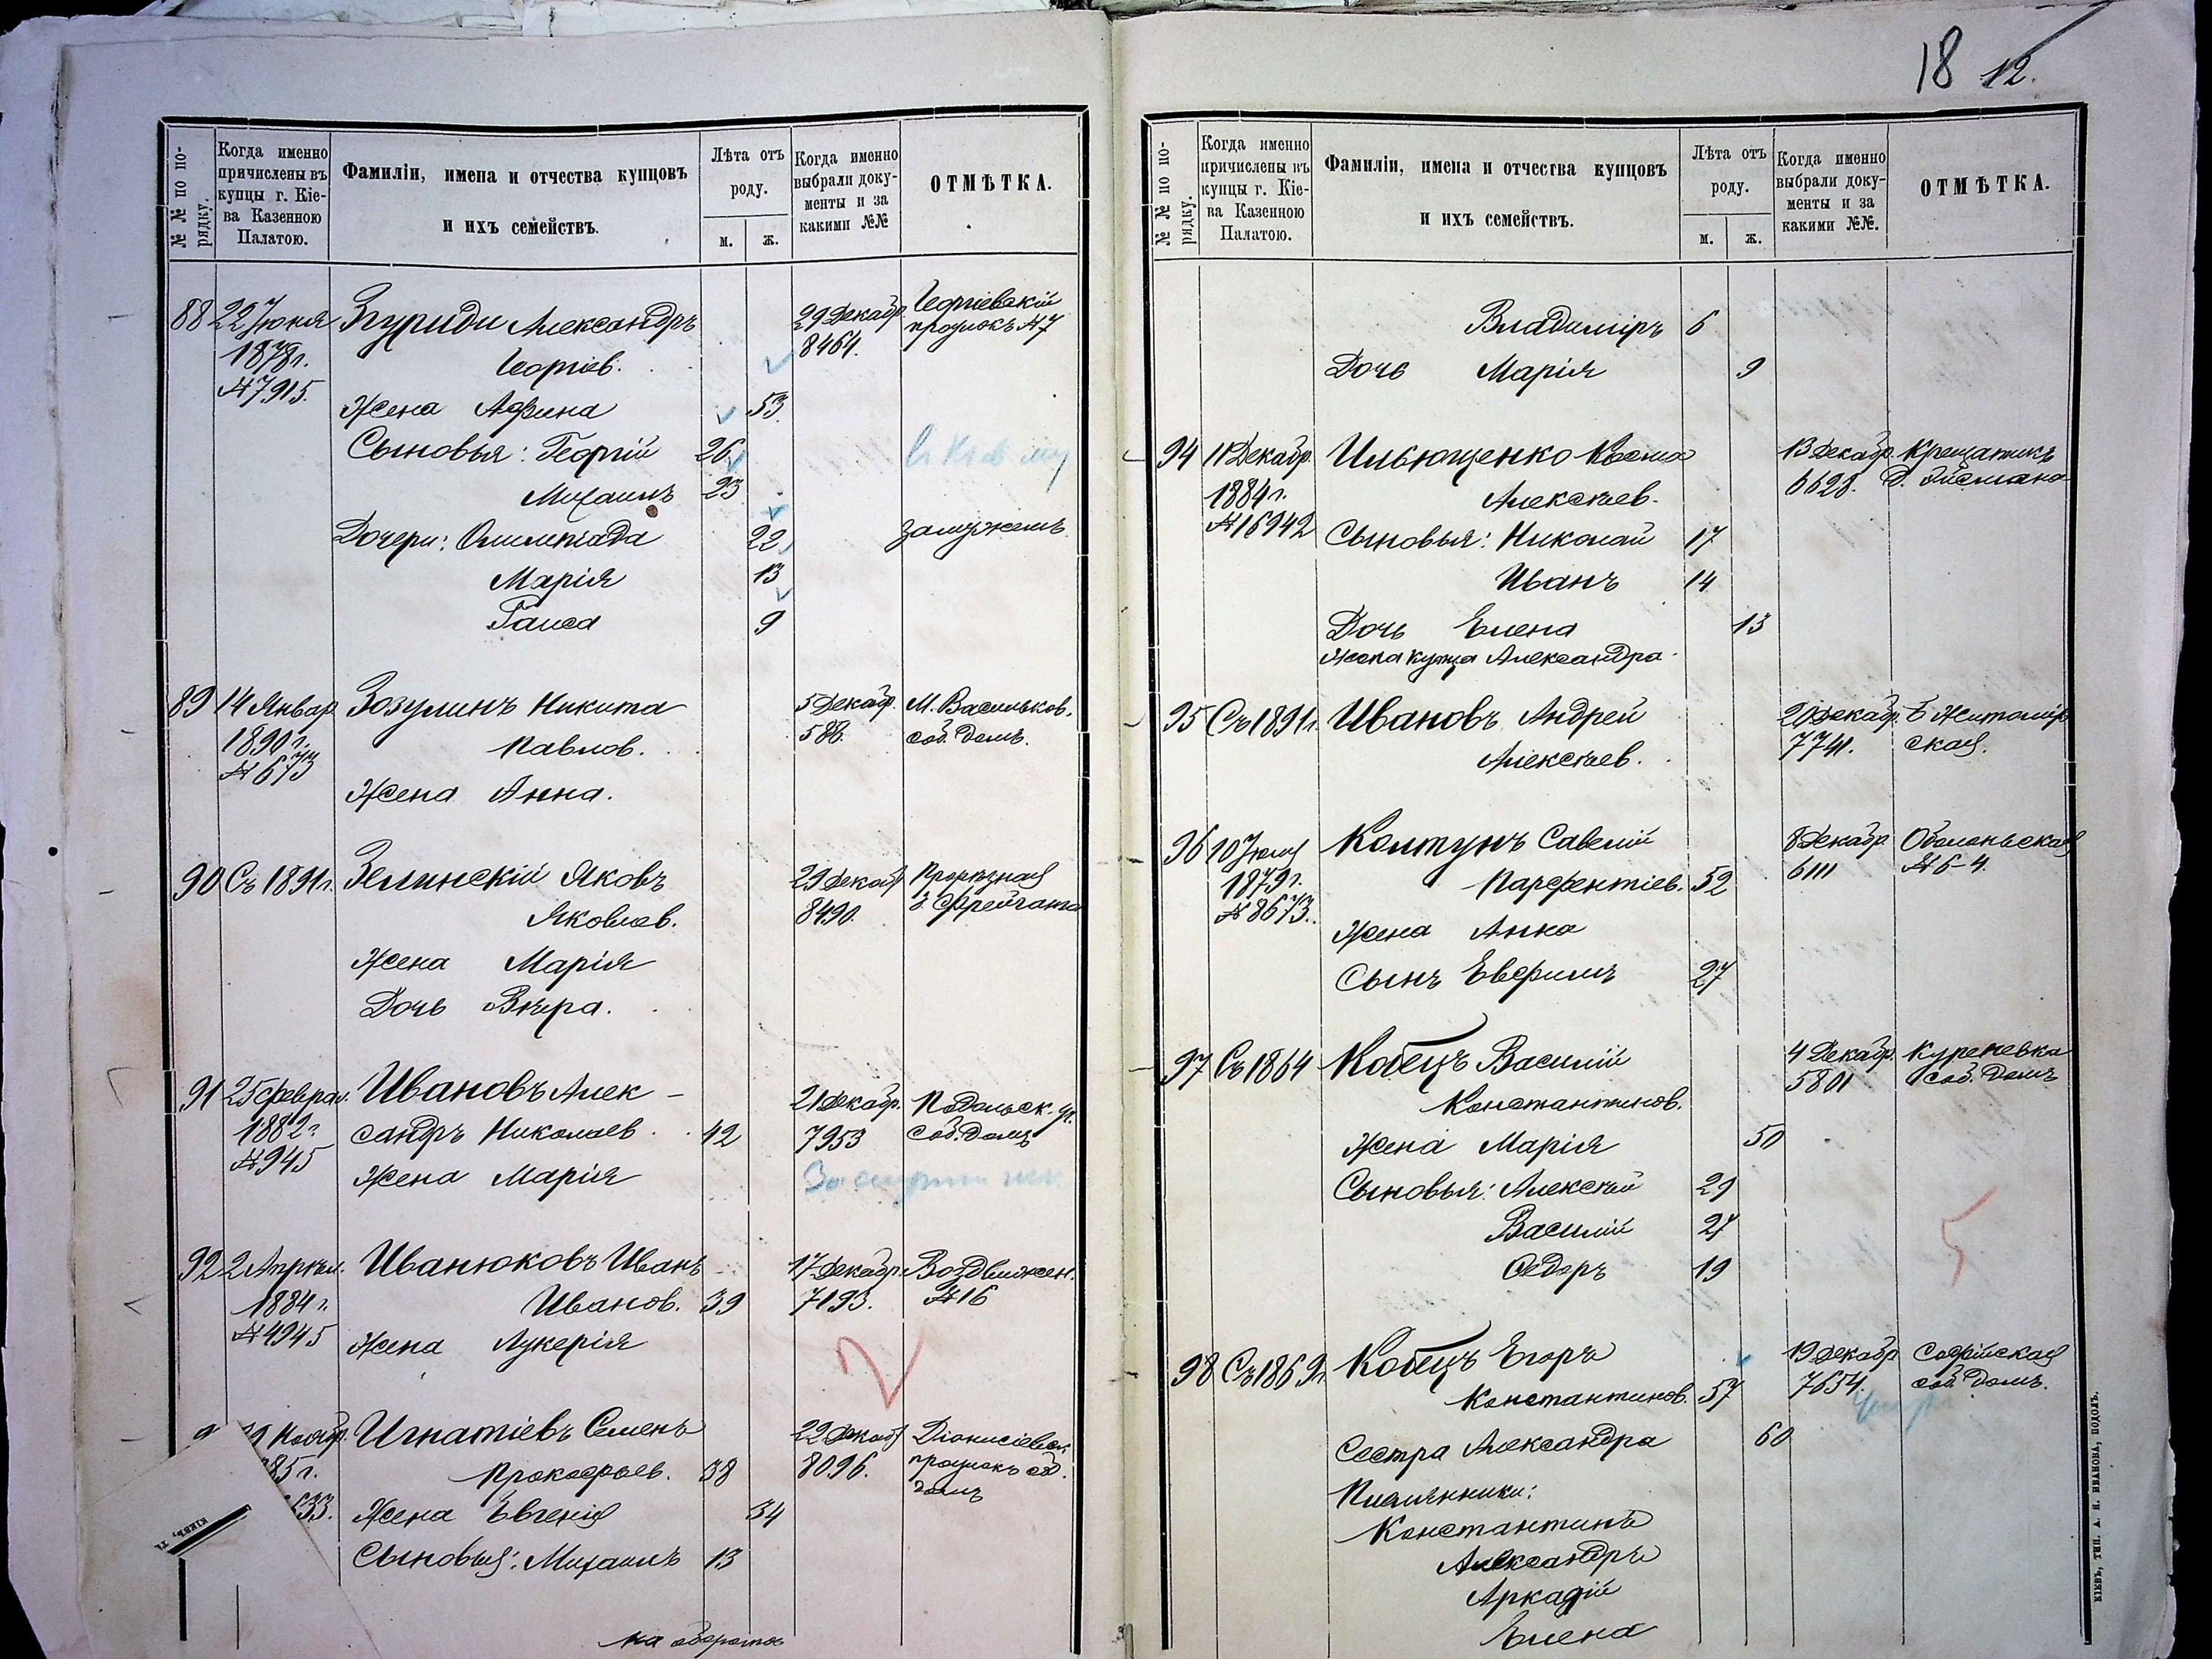 18 12.
№ № по по-
рядку.
Когда именно
причислены въ
купцы г. Кіе-
ва Казенною
Палатою.
Фамиліи, имена и отчества купцовъ
и ихъ семействъ.
Лѣта отъ
роду.
м. ж.
Когда именно
выбрали доку-
менты и за
какими №№
ОТМѢТКА.
88 22 Іюня Згуриди Александръ 29 Декабр. Георгіевскій
1878г. Георгіев. 8464. проулокъ №7
№7915. Жена Афина 53
Сыновья: Георгій 26
Михаилъ 23
Дочери: Олимпіада 22 замужемъ
Марія 13
Таиса 9
89 14 Январ. Зозулинъ Никита 5 Декабр. М. Васильков.
1890г. Павлов. соб. домъ.
№673 Жена Анна.
90 Съ 1891г. Зелинскій Яковъ 29 Декабр. Прорѣзная
Яковлев. 8490.
Жена Марія
Дочь Вѣра.
91 25 Феврал. Ивановъ Алек- 21 Декабр. Подольск. ул.
1882г. сандръ Николаев. 42 7953 соб. домъ
№945 Жена Марія
92 2 Апрѣл. Иванюковъ Иванъ 17 Декабр. Воздвижен.
1884г. Иванов. 39 7193. №16
№4945 Жена Лукерія
2
9 Ноябр. Игнатіевъ Семенъ 22 Декабр. Діонисіевск.
85г. Прокофьев. 38 8096. проулокъ соб.
533. Жена Евгенія 34 домъ
Сыновья: Михаилъ 13
на оборотѣ
КІЕВЪ,
№ № по по-
рядку.
Когда именно
причислены въ
купцы г. Кіе-
ва Казенною
Палатою.
Фамиліи, имена и отчества купцовъ
и ихъ семействъ.
Лѣта отъ
роду.
м. ж.
Когда именно
выбрали доку-
менты и за
какими №№.
ОТМѢТКА.
Владиміръ 6
Дочь Марія 9
94 11 Декабр. Ильющенко Косма 13 Декабр. Крещатикъ
1884г. Алексѣев. 6628. д. Эйсмана
№16942 Сыновья: Николай 17
Иванъ 14
Дочь Елена 13
Жена купца Александра.
95 Съ 1891г. Ивановъ Андрей 20 Декабр. Б Житомір
Алексѣев. 7741. ская.
96 10 Іюля Колтунъ Савелій 8 Декабр. Оболоньская
1879г. Парфентіев. 52 6111 №6-4.
№8673. Жена Анна
Сынъ Евфимъ 27
97 Съ 1864 Кобецъ Василій 4 Декабр. Куреневка
Константинов. 5801 соб. домъ
Жена Марія 50
Сыновья: Алексѣй 29
Василій 27
Ѳедоръ 19
5
98 Съ 1869г. Кобецъ Егоръ 19 Декабр. Софійская
Константинов. 57 7654. соб. домъ.
Сестра Александра 60
Племянники:
Константинъ
Александръ
Аркадій
Елена
КІЕВЪ, ТИП. А. Н. ИВАНОВА, ПОДОЛЪ.